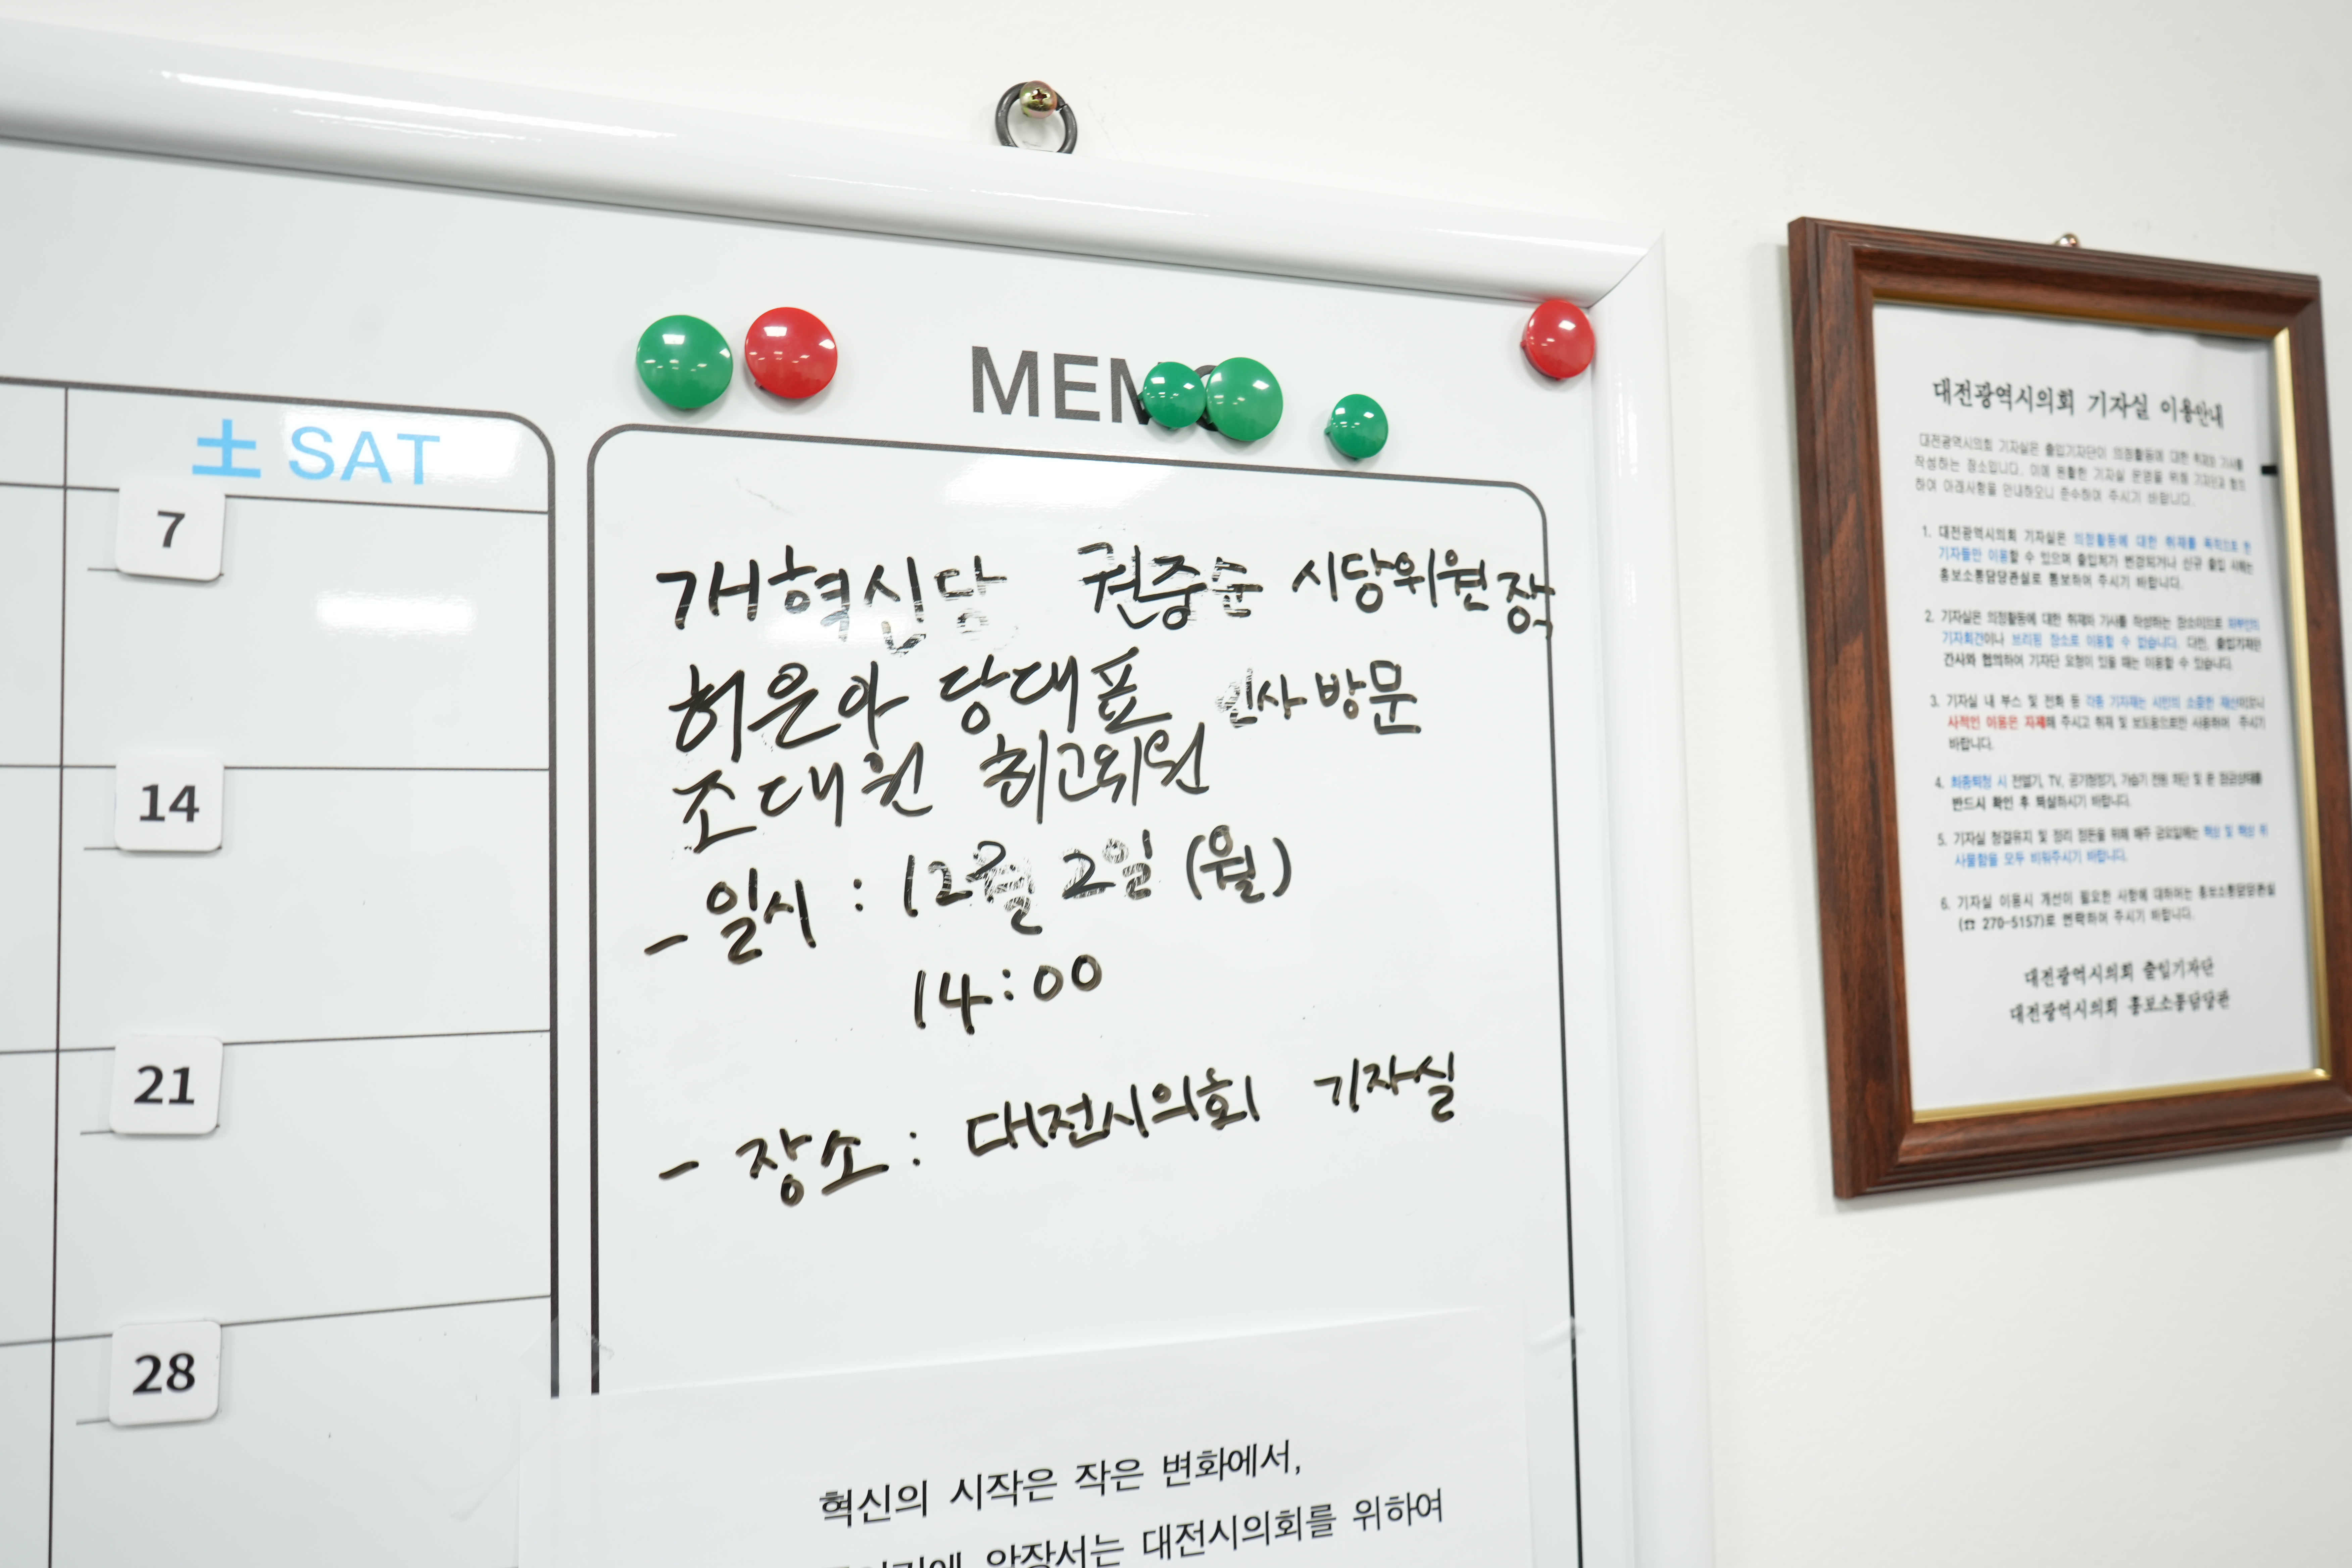 土 SAT
7
14
21
28
MEM
개혁신당 권중순 시당위원장
허은아 당대표 인사방문
조대원 최고위원
- 일시 : 12월 2일 (월)
14:00
- 장소 : 대전시의회 기자실
혁신의 시작은 작은 변화에서,
앞장서는 대전시의회를 위하여
대전광역시의회 기자실 이용안내
대전광역시의회 기자실은 출입기자단이 의정활동에 대한 취재와 기사를
작성하는 장소입니다. 이에 원활한 기자실 운영을 위해 기자단과 협의
하여 아래사항을 안내하오니 준수하여 주시기 바랍니다.
1. 대전광역시의회 기자실은 의정활동에 대한 취재를 목적으로 한
기자들만 이용할 수 있으며 출입처가 변경되거나 신규 출입 시에는
홍보소통담당관실로 통보하여 주시기 바랍니다.
2. 기자실은 의정활동에 대한 취재와 기사를 작성하는 장소이므로 외부인의
기자회견이나 브리핑 장소로 이용할 수 없습니다. 다만, 출입기자단
간사와 협의하여 기자단 요청이 있을 때는 이용할 수 있습니다.
3. 기자실 내 부스 및 전화 등 각종 기자재는 시민의 소중한 재산이오니
사적인 이용은 자제해 주시고 취재 및 보도용으로만 사용하여 주시기
바랍니다.
4. 최종퇴청 시 전열기, TV, 공기청정기, 가습기 전원 차단 및 문 잠금상태를
반드시 확인 후 퇴실하시기 바랍니다.
5. 기자실 청결유지 및 정리 정돈을 위해 매주 금요일에는 책상 및 책상 위
사물함을 모두 비워주시기 바랍니다.
6. 기자실 이용시 개선이 필요한 사항에 대하여는 홍보소통담당관실
(☎ 270-5157)로 연락하여 주시기 바랍니다.
대전광역시의회 출입기자단
대전광역시의회 홍보소통담당관